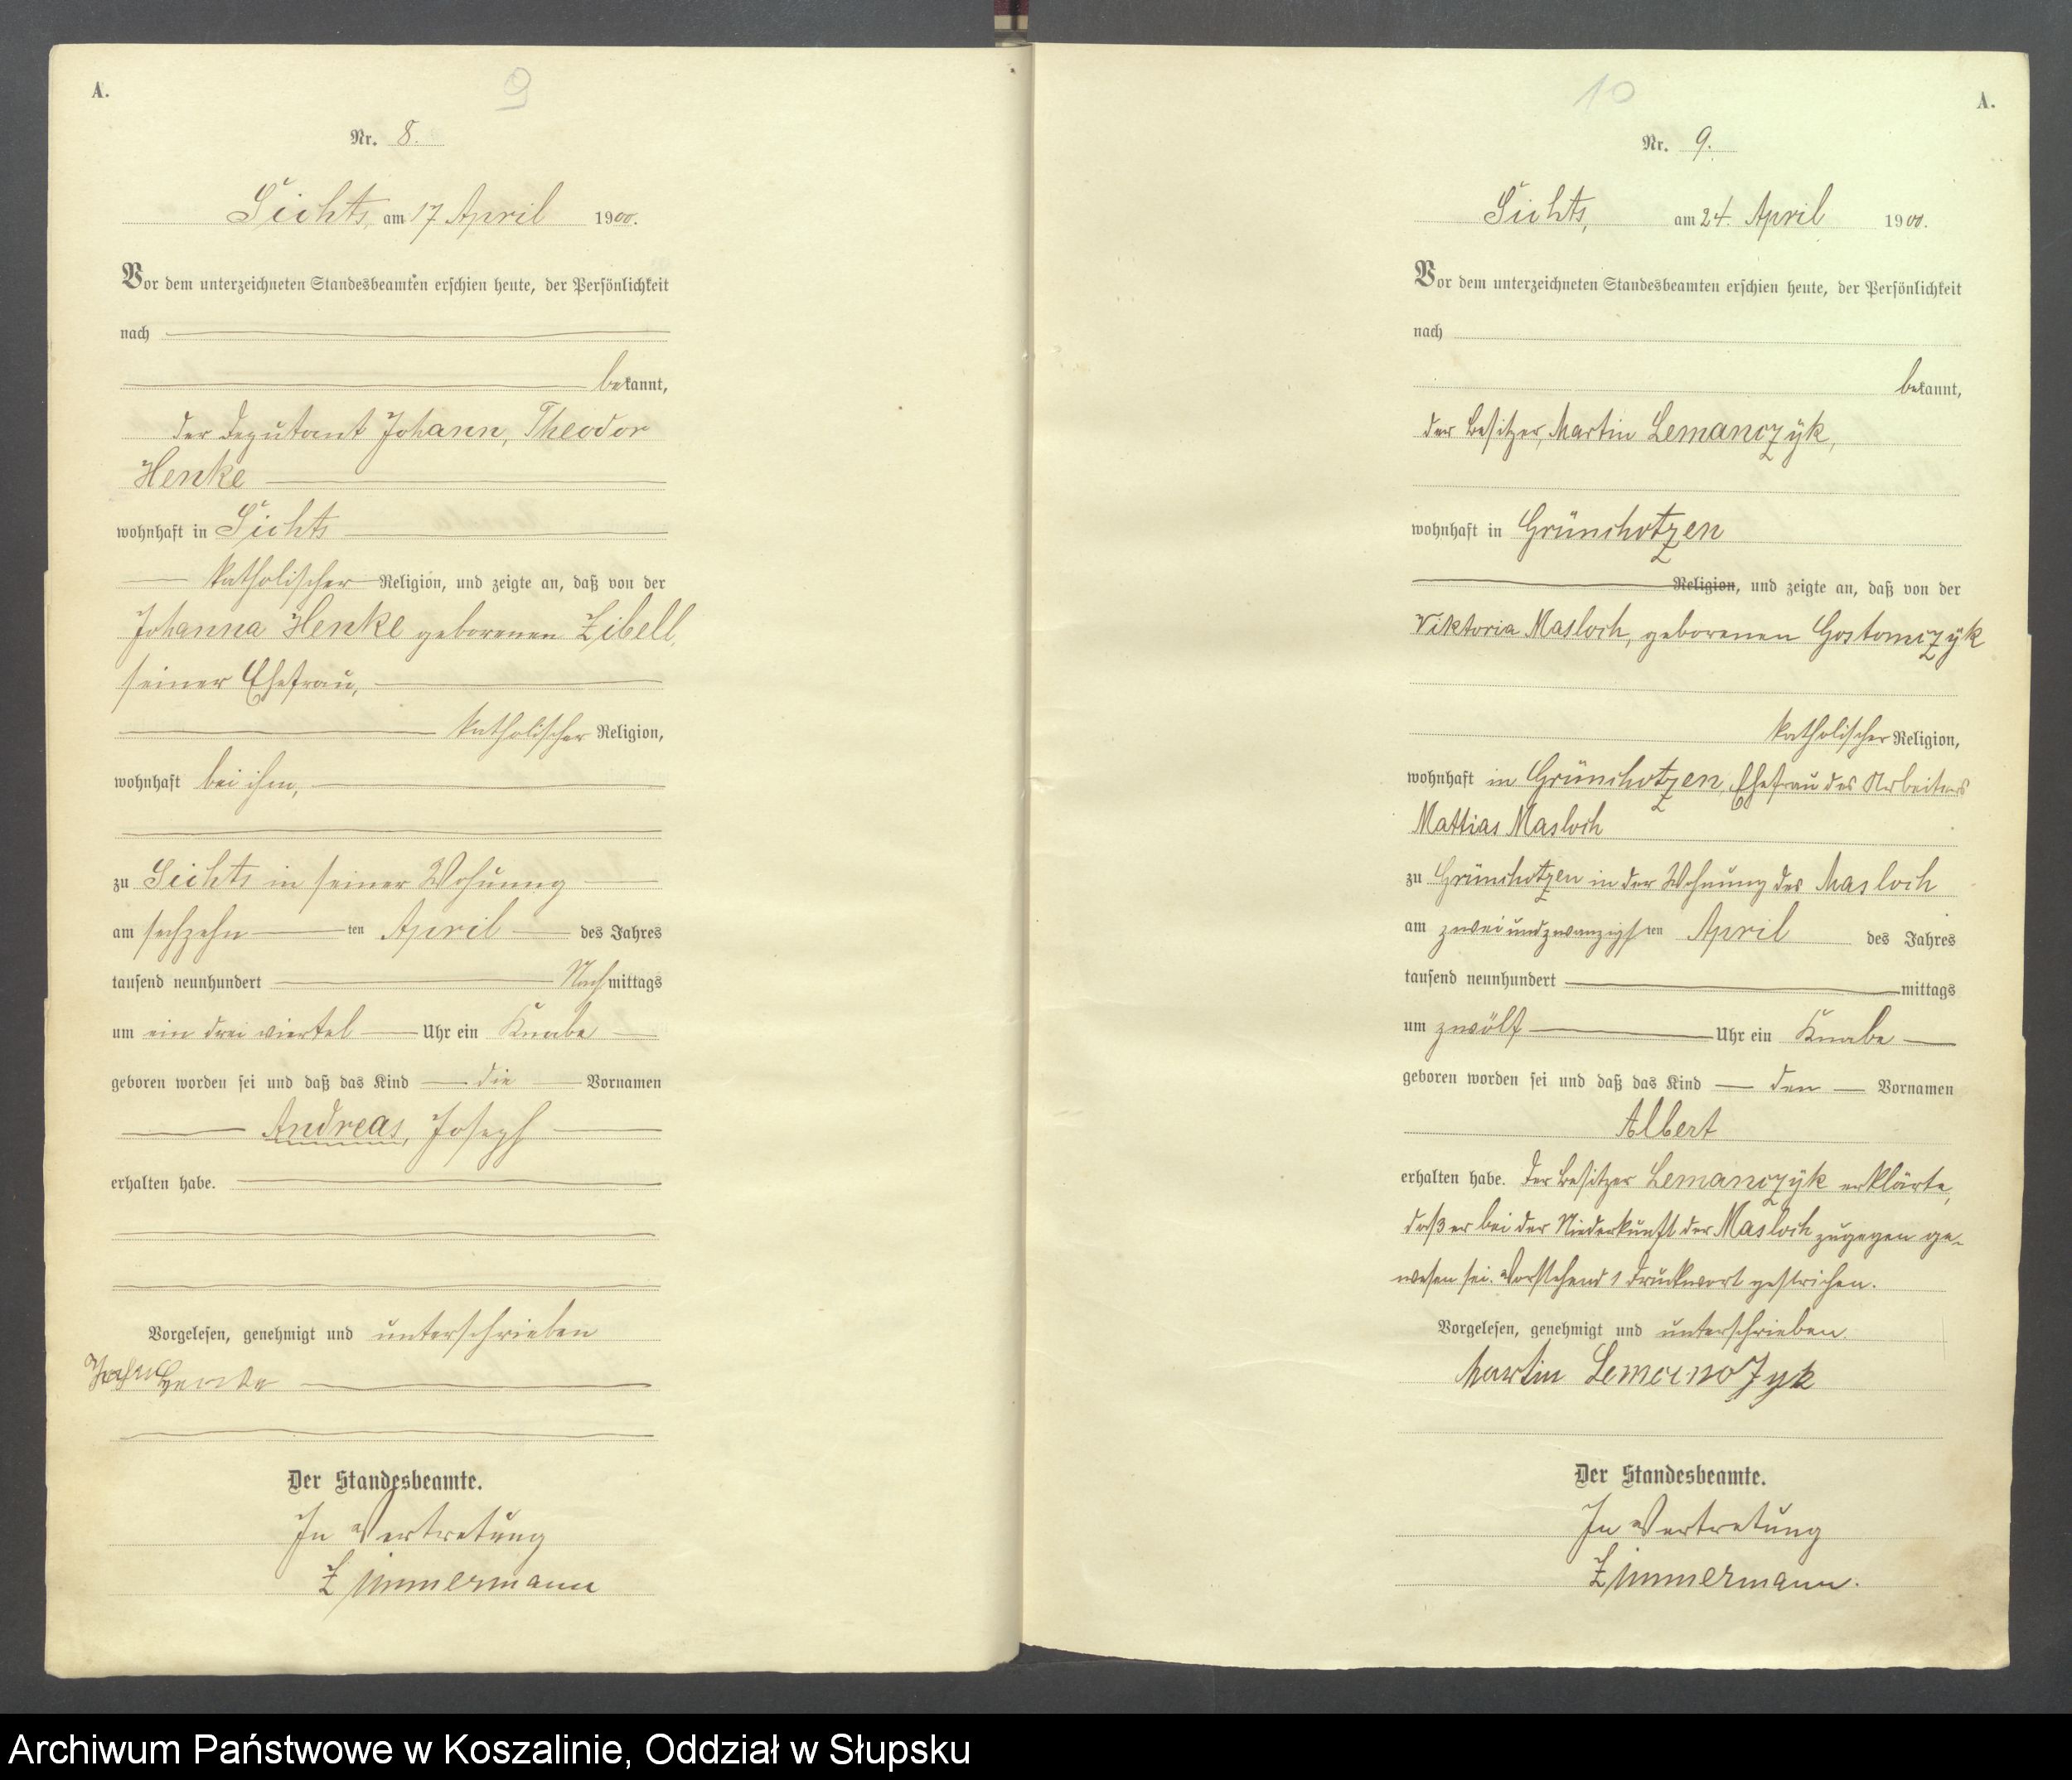 A.
9
Nr. 8.
Sichts, am 17 April 1900.
Vor dem unterzeichneten Standesbeamten erschien heute, der Persönlichkeit
nach
bekannt,
der Deputant Johann, Theodor
Henke
wohnhaft in Sichts
katholischer Religion, und zeigte an, daß von der
Johanna Henke geborenen Zibell,
seiner Ehefrau,
katholischer Religion,
wohnhaft bei ihm,
zu Sichts in seiner Wohnung
am sechzehn ten April des Jahres
tausend neunhundert Nachmittags
um ein drei viertel Uhr ein Knabe
geboren worden sei und daß das Kind die Vornamen
Andreas, Joseph
erhalten habe.
Vorgelesen, genehmigt und unterschrieben
Johann Henke
Der Standesbeamte.
In Vertretung
Zimmermann
10
A.
Nr. 9.
Sichts, am 24. April 1900.
Vor dem unterzeichneten Standesbeamten erschien heute, der Persönlichkeit
nach
bekannt,
der Besitzer, Martin Lemanczÿk,
wohnhaft in Grünchotzen
Religion, und zeigte an, daß von der
Viktoria Masloch, geborenen Gostomczÿk
katholischer Religion,
wohnhaft in Grünchotzen, Ehefrau des Arbeiters
Mattias Masloch
zu Grünchotzen in der Wohnung des Masloch
am zweiundzwanzigsten April des Jahres
tausend neunhundert mittags
um zwölf Uhr ein Knabe
geboren worden sei und daß das Kind den Vornamen
Albert
erhalten habe. Der Besitzer Lemanczÿk erklärte,
daß er bei der Niederkunft der Masloch zugegen ge-
wesen sei. Vorstehend 1 Druckwort gestrichen.
Vorgelesen, genehmigt und unterschrieben.
Martin Lemanczyk
Der Standesbeamte.
In Vertretung
Zimmermann.
Archiwum Państwowe w Koszalinie, Oddział w Słupsku